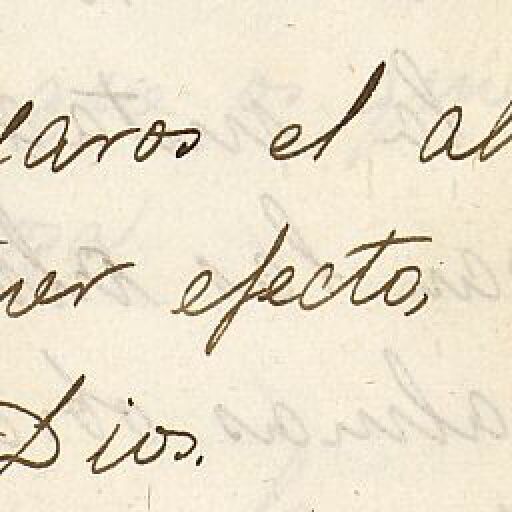 laros el al
uer efecto,
Dios.